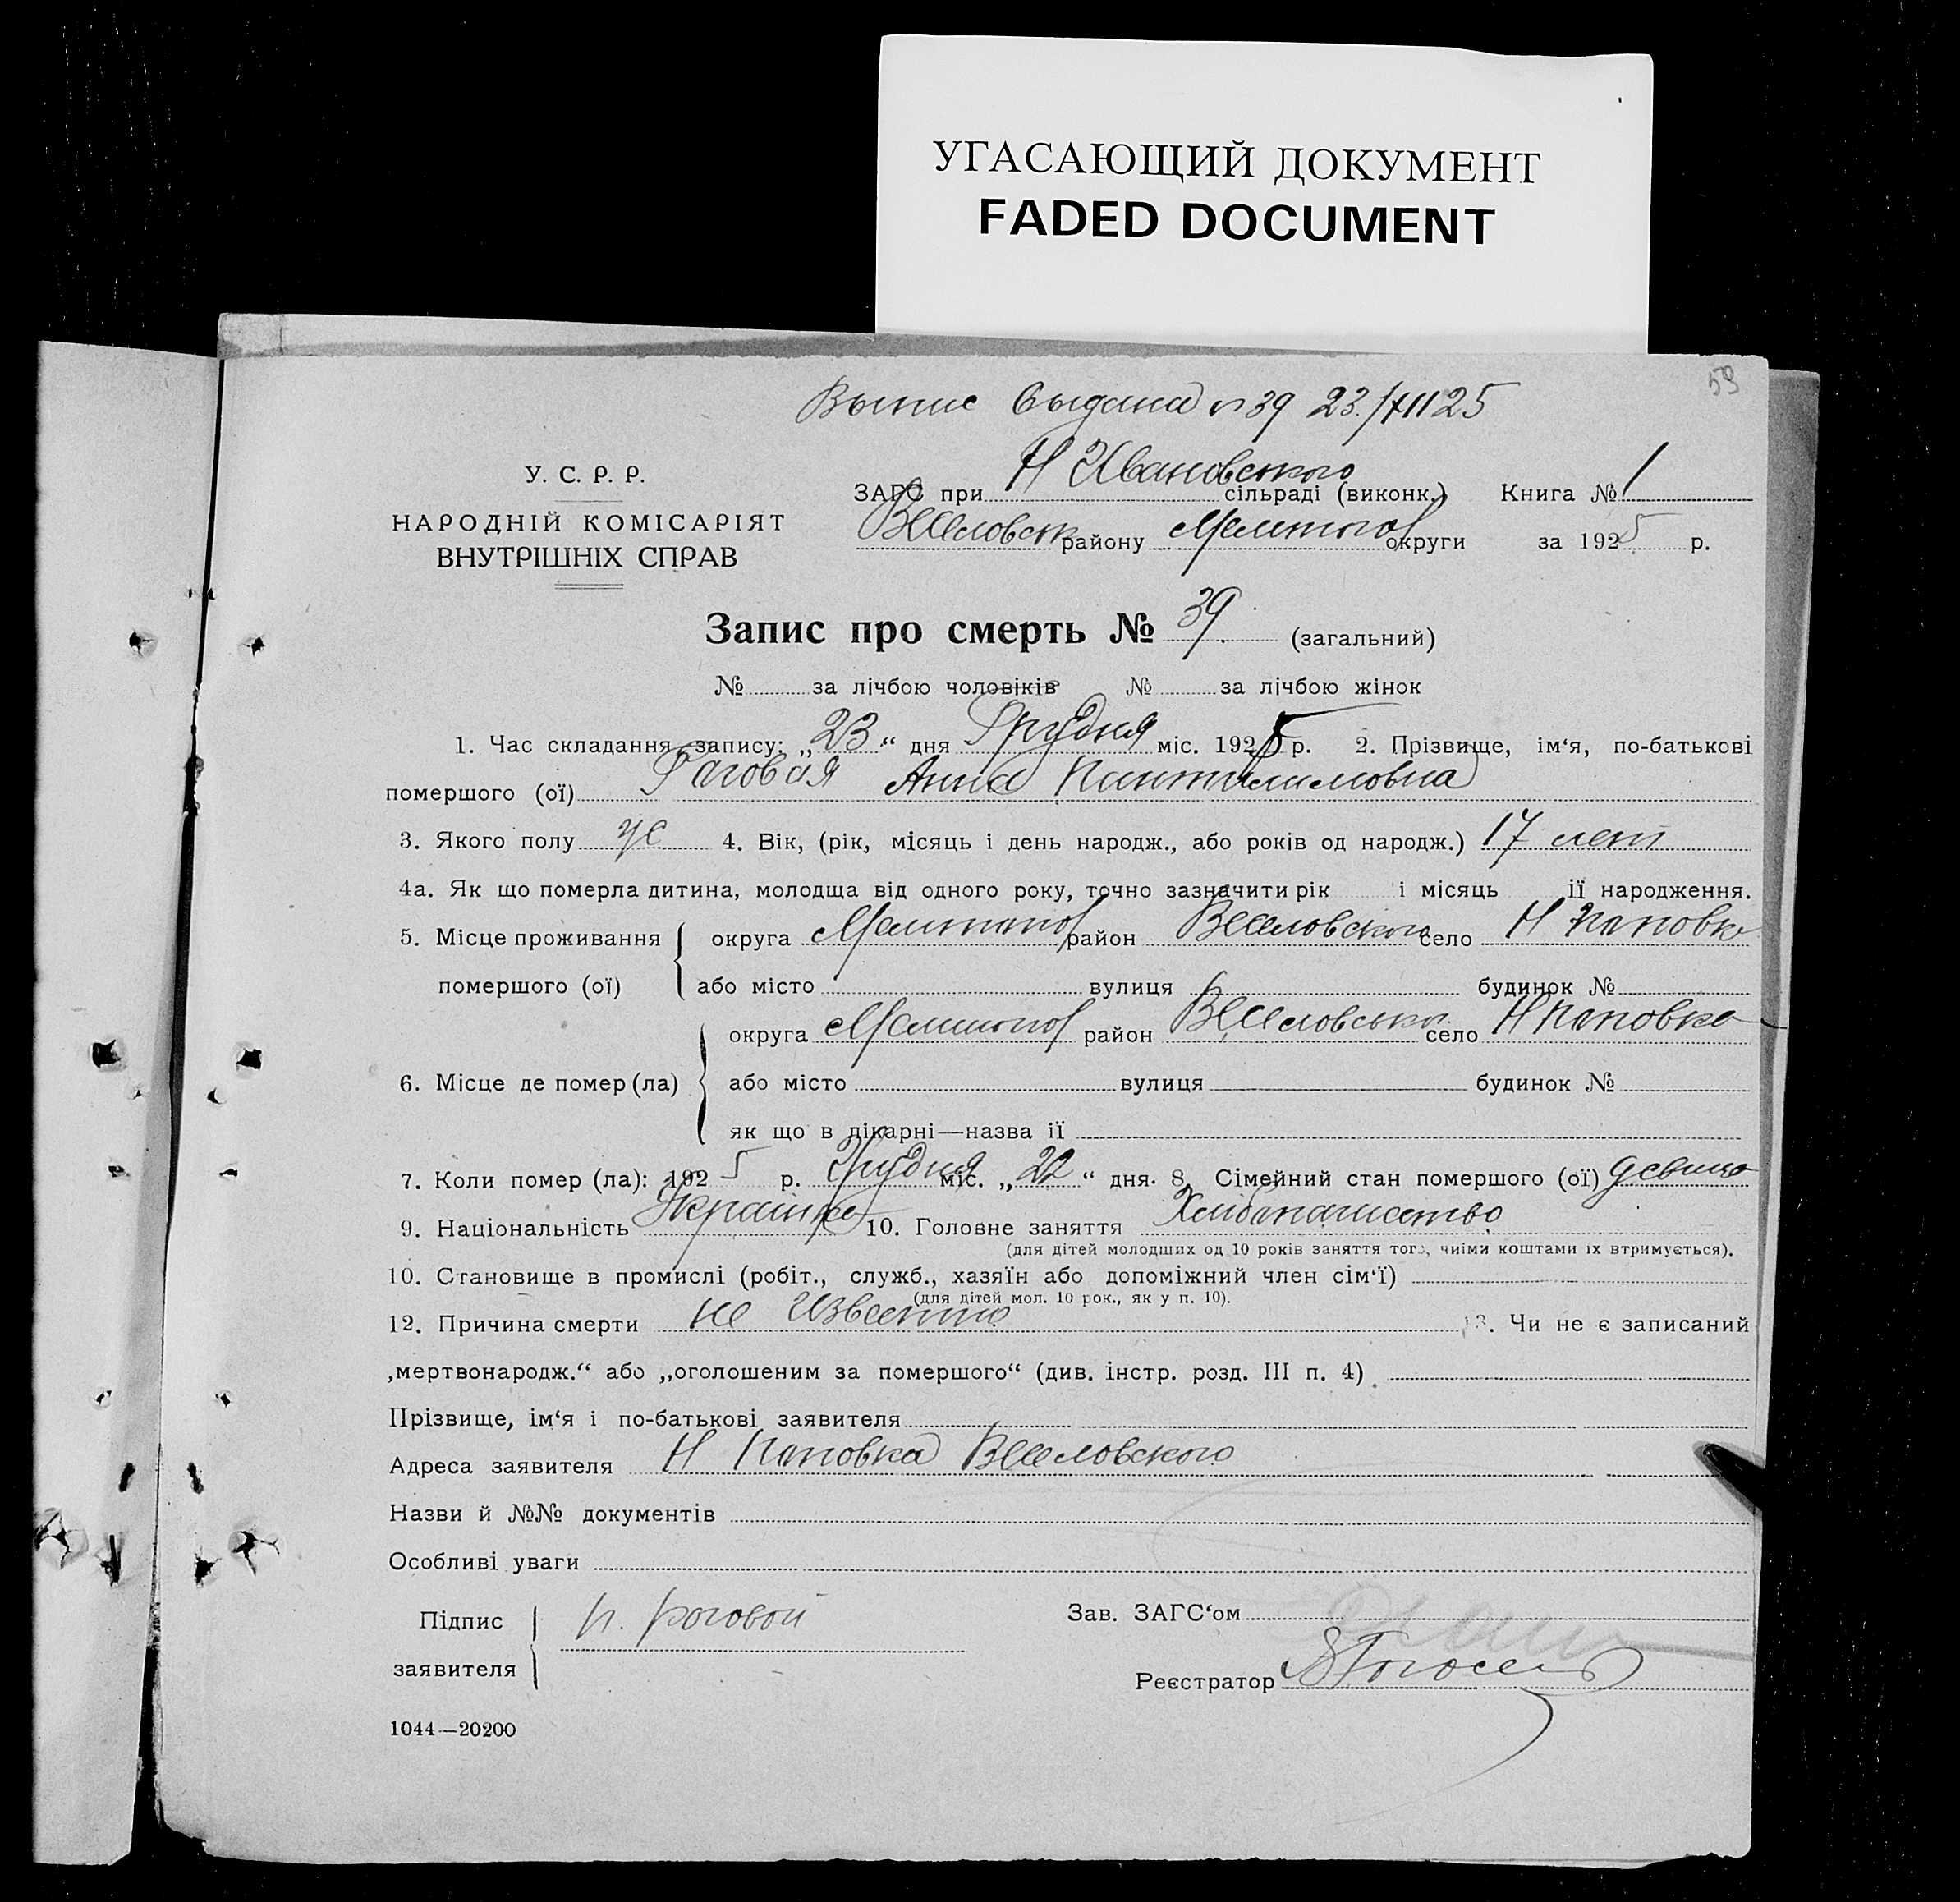 УГАСАЮЩИЙ ДОКУМЕНТ
FADED DOCUMENT
59
Выпис выдана № 39 23/XII 25
У. С. Р. Р.
НАРОДНІЙ КОМІСАРІЯТ
ВНУТРІШНІХ СПРАВ
ЗАГС при Н Ивановского сільраді (виконк.) Книга № 1
Веселовск району Мелитопол округи за 1925 р.
Запис про смерть № 39 (загальний)
№ за лічбою чоловіків № за лічбою жінок
1. Час складання запису: „23“ дня Грудня міс. 1925 р. 2. Прізвище, ім‘я, по-батькові
помершого (ої) Раговая Анна Пантилимовна
3. Якого полу ж 4. Вік, (рік, місяць і день народж., або років од народж.) 17 лет
4а. Як що померла дитина, молодща від одного року, точно зазначити рік і місяць її народження.
5. Місце проживання помершого (ої) округа Мелитопол район Веселовского село Н Поповка
або місто вулиця будинок №
6. Місце де помер (ла) округа Мелитопол район Веселовська село Н Поповка
або місто вулиця будинок №
як що в лікарні—назва її
7. Коли помер (ла): 1925 р. Грудня міс. „22“ дня. 8. Сімейний стан помершого (ої) девица
9. Національність Українка 10. Головне заняття Хлибопашество
(для дітей молодших од 10 років заняття того, чиїми коштами їх втримується).
10. Становище в промислі (робіт., служб., хазяїн або допоміжний член сім‘ї)
(для дітей мол. 10 рок., як у п. 10).
12. Причина смерти не известно 13. Чи не є записаний
„мертвонародж.“ або „оголошеним за помершого“ (див. інстр. розд. III п. 4)
Прізвище, ім‘я і по-батькові заявителя
Адреса заявителя Н Поповка Веселовского
Назви й №№ документів
Особливі уваги
Підпис заявителя п. роговой
Зав. ЗАГС‘ом
Реєстратор
1044—20200